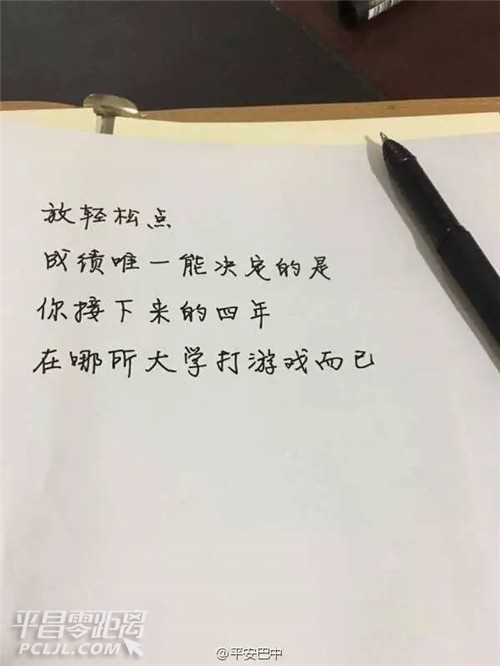 放轻松点
成绩唯一能决定的是
你接下来的四年
在哪所大学打游戏而已
平昌零距离
PCLJL.COM
@平安巴中